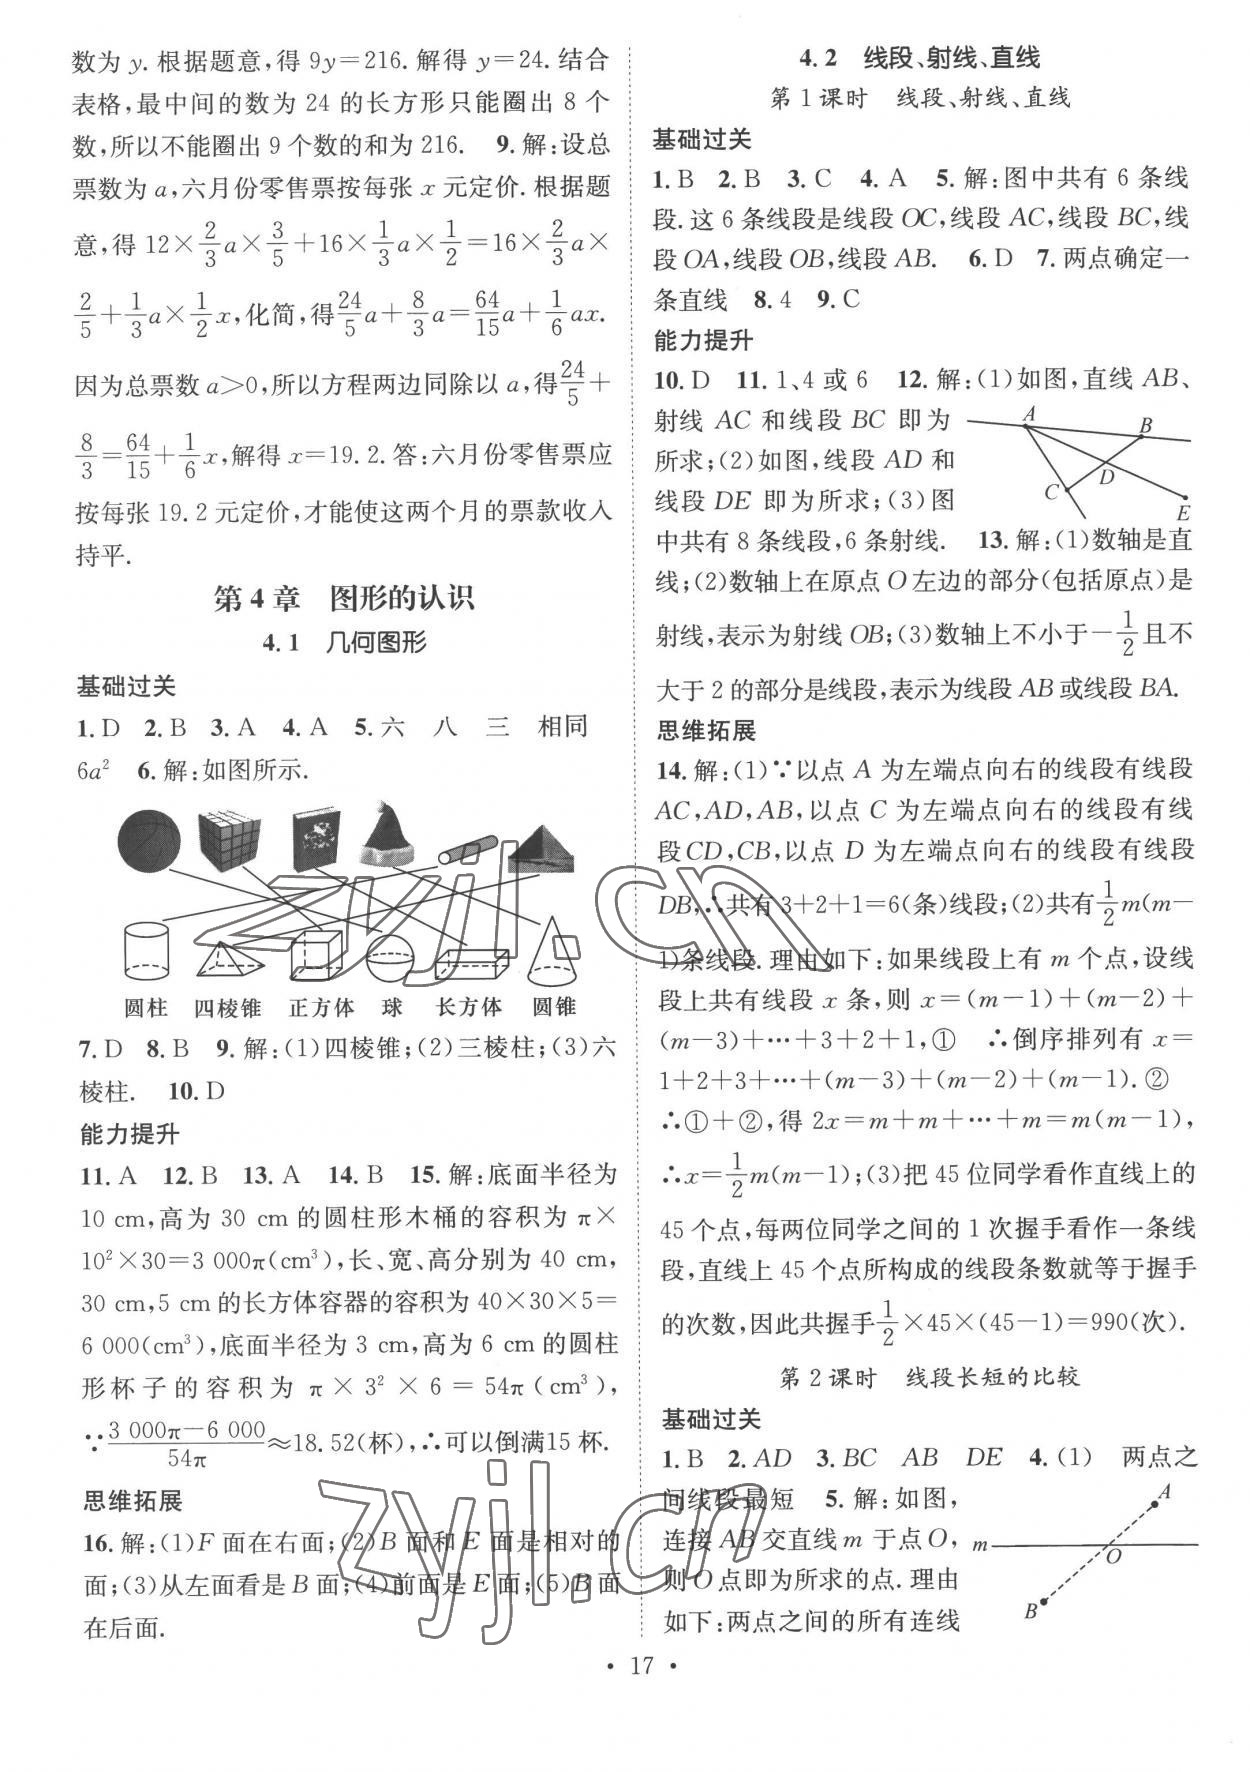 数为 y. 根据题意,得 9y=216. 解得 y=24. 结合
表格,最中间的数为 24 的长方形只能圈出 8 个
数,所以不能圈出 9 个数的和为 216. 9. 解:设总
票数为 a,六月份零售票按每张 x 元定价. 根据题
意,得 12×2/3a×3/5+16×1/3a×1/2=16×2/3a×
2/5+1/3a×1/2x,化简,得24/5a+8/3a=64/15a+1/6ax.
因为总票数 a>0,所以方程两边同除以 a,得24/5+
8/3=64/15+1/6x,解得 x=19.2. 答:六月份零售票应
按每张 19.2 元定价,才能使这两个月的票款收入
持平.
第 4 章 图形的认识
4.1 几何图形
基础过关
1. D 2. B 3. A 4. A 5. 六 八 三 相同
6a² 6. 解:如图所示.
圆柱 四棱锥 正方体 球 长方体 圆锥
7. D 8. B 9. 解:(1)四棱锥;(2)三棱柱;(3)六
棱柱. 10. D
能力提升
11. A 12. B 13. A 14. B 15. 解:底面半径为
10 cm,高为 30 cm 的圆柱形木桶的容积为 π×
10²×30=3 000π(cm³),长、宽、高分别为 40 cm,
30 cm,5 cm 的长方体容器的容积为 40×30×5=
6 000(cm³),底面半径为 3 cm,高为 6 cm 的圆柱
形杯子的容积为 π×3²×6=54π(cm³),
∵(3 000π−6 000)/54π≈18.52(杯),∴可以倒满15 杯.
思维拓展
16. 解:(1)F 面在右面;(2)B 面和 E 面是相对的
面;(3)从左面看是 B 面;(4)前面是 E 面;(5)B 面
在后面.
4.2 线段、射线、直线
第 1 课时 线段、射线、直线
基础过关
1. B 2. B 3. C 4. A 5. 解:图中共有 6 条线
段. 这 6 条线段是线段 OC,线段 AC,线段 BC,线
段 OA,线段 OB,线段 AB. 6. D 7. 两点确定一
条直线 8. 4 9. C
能力提升
10. D 11. 1、4 或 6 12. 解:(1)如图,直线 AB、
射线 AC 和线段 BC 即为
所求;(2)如图,线段 AD 和
线段 DE 即为所求;(3)图
A B C D E
中共有 8 条线段,6 条射线. 13. 解:(1)数轴是直
线;(2)数轴上在原点 O 左边的部分(包括原点)是
射线,表示为射线 OB;(3)数轴上不小于−1/2且不
大于 2 的部分是线段,表示为线段 AB 或线段 BA.
思维拓展
14. 解:(1)∵以点 A 为左端点向右的线段有线段
AC,AD,AB,以点 C 为左端点向右的线段有线
段 CD,CB,以点 D 为左端点向右的线段有线段
DB,∴共有 3+2+1=6(条)线段;(2)共有1/2m(m−
1)条线段. 理由如下:如果线段上有 m 个点,设线
段上共有线段 x 条,则 x=(m−1)+(m−2)+
(m−3)+…+3+2+1,① ∴倒序排列有 x=
1+2+3+…+(m−3)+(m−2)+(m−1). ②
∴①+②,得 2x=m+m+…+m=m(m−1),
∴x=1/2m(m−1);(3)把 45 位同学看作直线上的
45 个点,每两位同学之间的 1 次握手看作一条线
段,直线上 45 个点所构成的线段条数就等于握手
的次数,因此共握手1/2×45×(45−1)=990(次).
第 2 课时 线段长短的比较
基础过关
1. B 2. AD 3. BC AB DE 4. (1) 两点之
间线段最短 5. 解:如图,
连接 AB 交直线 m 于点 O,
则 O 点即为所求的点. 理由
如下:两点之间的所有连线
A m O B
• 17 •
zyjl.cn
zyjl.cn